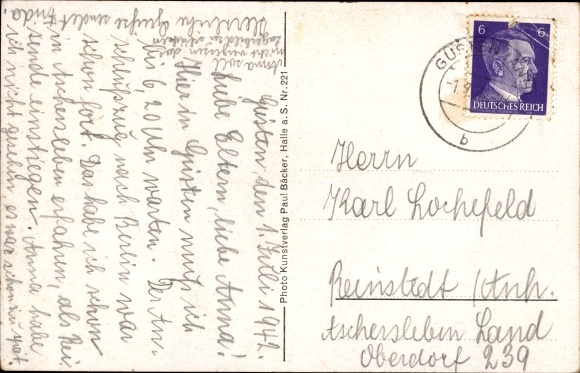 Güsten, den 1. Juli 1942.
Liebe Eltern, liebe Anna!
Hier in Güsten muß ich
bis 6,20 Uhr warten. Der An-
schlußzug nach Berlin war
schon fort. Das habe ich schon
in Aschersleben erfahren, als Rei-
sende einstiegen. Anna habe
ich nicht gesehen, es war schon zu spät.
Herzliche Grüße sendet
Anna soll
nicht vergessen das
zu schicken
Photo Kunstverlag Paul Bäcker, Halle a. S. Nr. 221
6 6
DEUTSCHES REICH
GÜST
b
Herrn
Karl Lochefeld
Reinstedt /Anh.
Aschersleben Land
Oberdorf 239